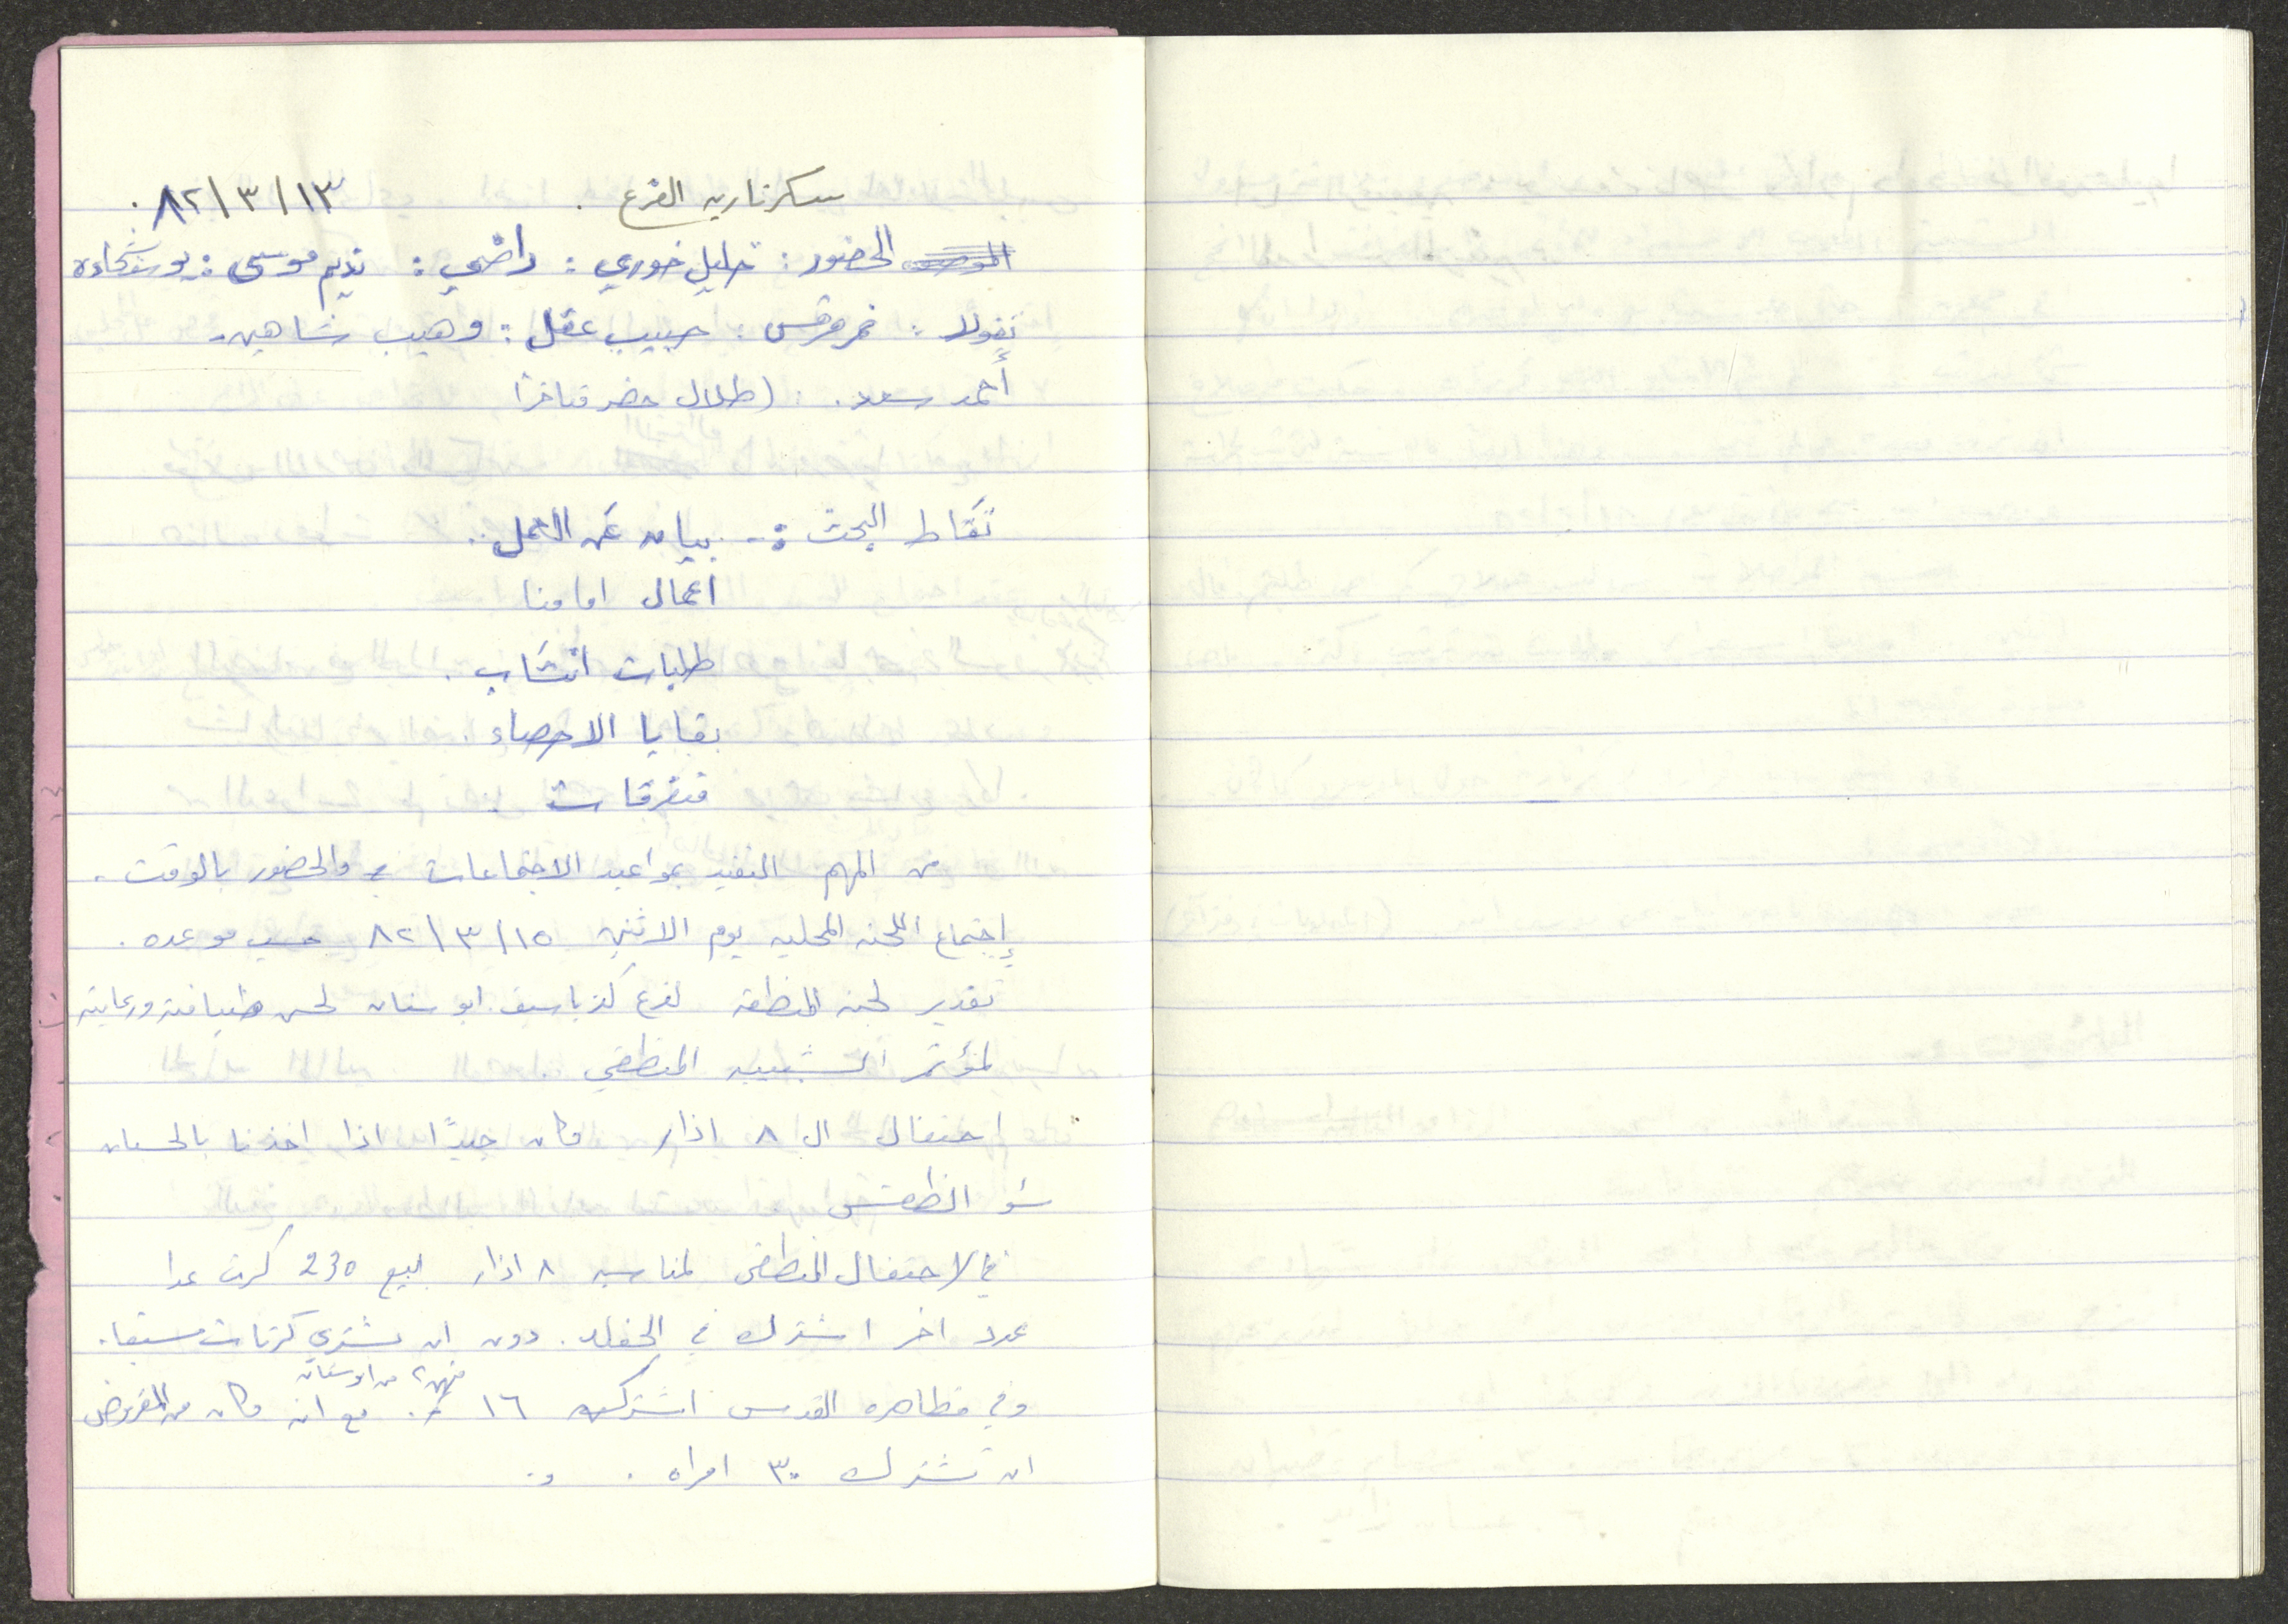 سكرتاريه الفرع . ٨٢/٣/١٣ .
الحضور : خليل خوري : راضي : نديم موسى : يوشحاده
نقولا : نمر مرقس : حبيب عقل : وهيب شاهين .
أحمد سعد . (طلال حضر متاخرًا
نقاط البحث :- بيان عن العمل ..
اعمال امامنا
طلبات انتساب .
بقايا الاحصاء .
متفرقات .
من المهم التقيد بمواعيد الاجتماعات والحضور بالوقت .
إجتماع اللجنه المحليه يوم الاثنين ٨٢/٣/١٥ حسب موعده .
تقدير لجنه المنطقه لفرع كفر ياسيف ابو سنان لحسن ضيافته ورعايته
لمؤتمر الشبيبه المنطقي .
احتفال ال ٨ اذار وكان جيدًا اذا اخذنا بالحسبان
سوء الطقس
في الاحتفال المنطقي لمناسبه ٨ اذار بيع 230 كرت عدا
عدد اخر اشترك في الحفله . دون ان يشتري كرتات مسبقا .
منهن ٢ من ابوسنان
وفي مظاهره القدس اشتركت ١٦ . مع انه وكان من المفروض
ان تشترك ٣٠ امراه . و .